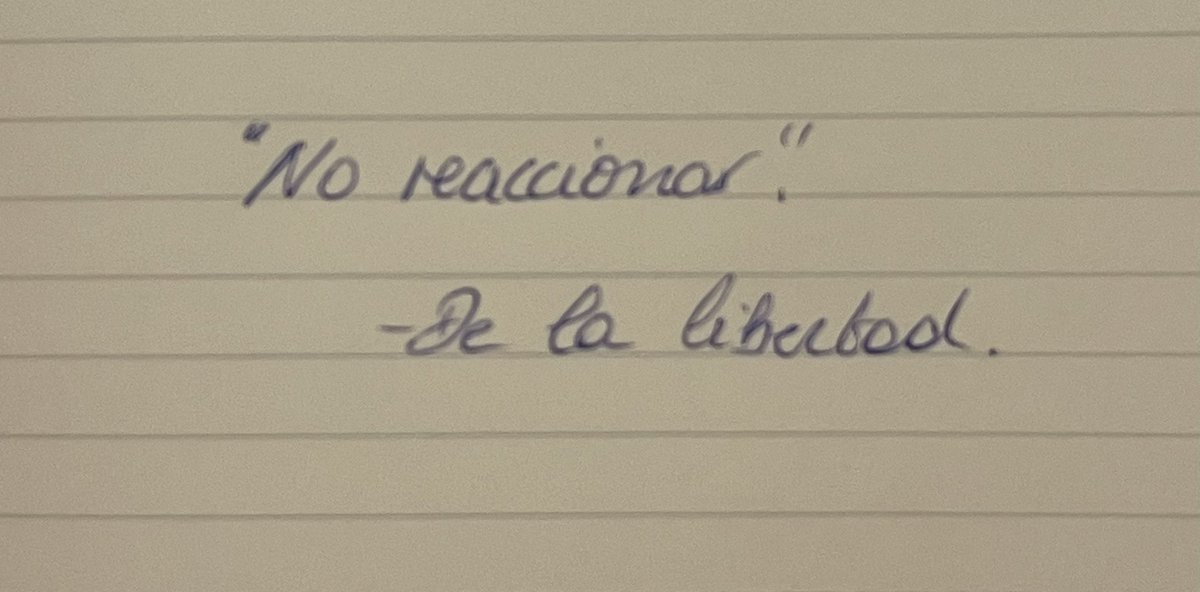 "No reaccionar."
-De la libertad.